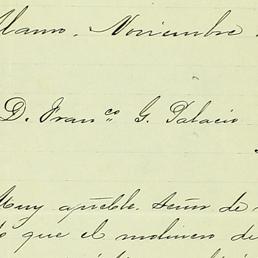 Llano. Noviembre
D. Franco. G. Palacio
Muy apble. Señor de
que el molinero de